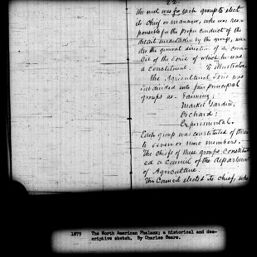 the rule was for each group to elect
its chief or manager, who was res-
ponsible for the proper conduct of the
under the general direction of the coun-
cil of the Series of which he was
a constituent. To illustrate:
the Agricultural Series was
sub-divided into five principal
groups as - Farming;
Market Garden;
Orchard;
Experimental.
Each group was constituted of three
to seven or more members.
The chiefs of these groups constitut-
ed a Council of the department
of Agriculture.
This Council elected its chief, who
1879 The North American Phalanx; a historical and des-
criptive sketch. By Charles Sears.